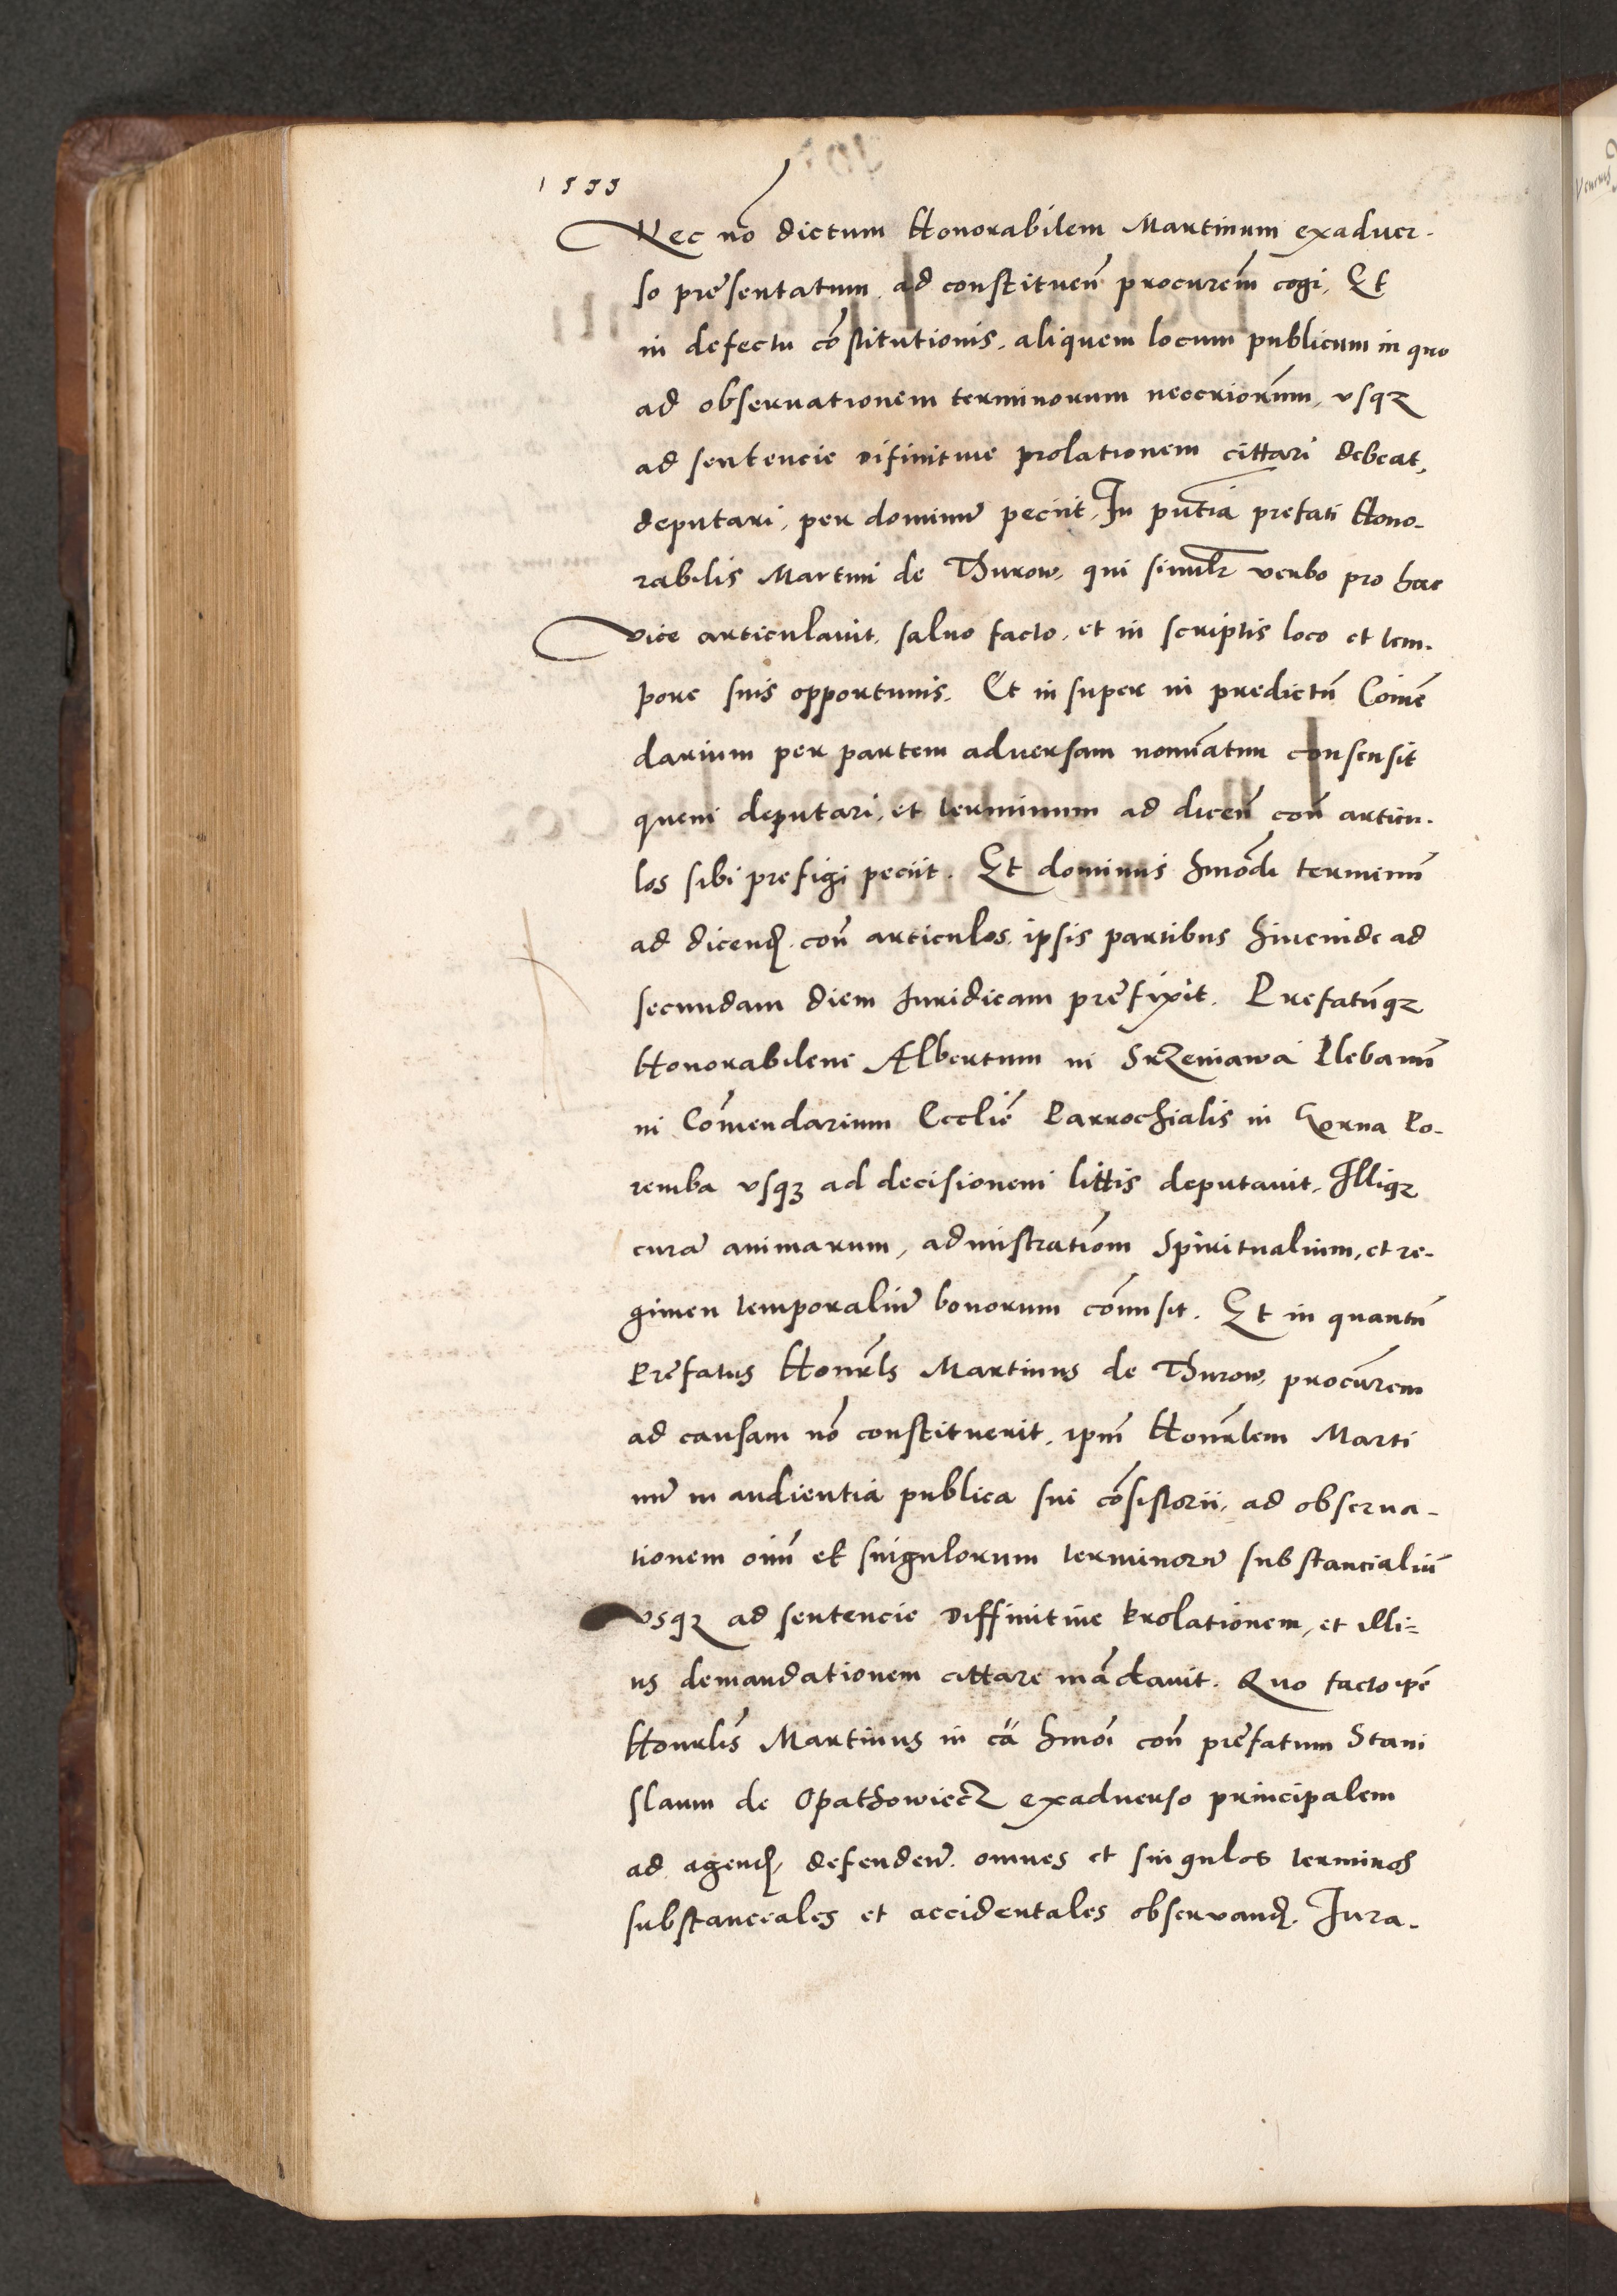 1555
Nec nõ dictum Honorabilem Martinum exaduer-
so presentatum, ad constituen̄ procurem̄ cogi, Et
in defectu cõstitutionis, aliquem locum publicum in quo
ad obseruationem terminorum neccriorum, vsqꝫ
ad sentencie difinitiue prolationem cittari debeat,
deputari, per dominū peciit, In pn̄tia prefati Hono-
rabilis Martini de Thurow, qui similr̄ verbo pro hac
vice articulauit, saluo facto, et in scriptis loco et tem-
pore suis opportunis. Et in super in predictū Com̄e
darium per partem aduersam nomīatum consensit
quem deputari, et terminum ad dicen̄ con̄ articu-
los sibi prefigi peciit. Et dominus hm̄odi terminū
ad dicenđ con̄ articulos, ipsis partibus hincinde ad
secundam diem Juridicam prefixit. Prefatūqꝫ
Honorabilem Albertum in Srzeniawa Plebanū
in Com̄endarium Eccliē Parrochialis in Gorna Po-
remba vsqꝫ ad decisionem littis deputauit, Illiqꝫ
curā animarum, admīstratiõm Spiritualium, et re-
gimen temporaliū bonorum com̄isit. Et in quantū
Prefatus Honrls̄ Martinus de Thurow, procurem̄
ad causam nõ constituerit, ipm̄ Honrlem̄ Marti
nū in audientia publica sui cõsistorii, ad obserua-
tionem oim̄ et singulorum terminorū substancialiū
vsqꝫ ad sentencie Diffinitiue Prolationem, et illi=
us demandationem cittare mādauit. Quo facto ipē
Honrlis̄ Martinus in cā hm̄oi con̄ prefatum Stani
slaum de Opathowiecz exaduerso principalem
ad agenđ, defenden̄ omnes et singulos terminos
substanciales et accidentales obseruanđ. Jura-